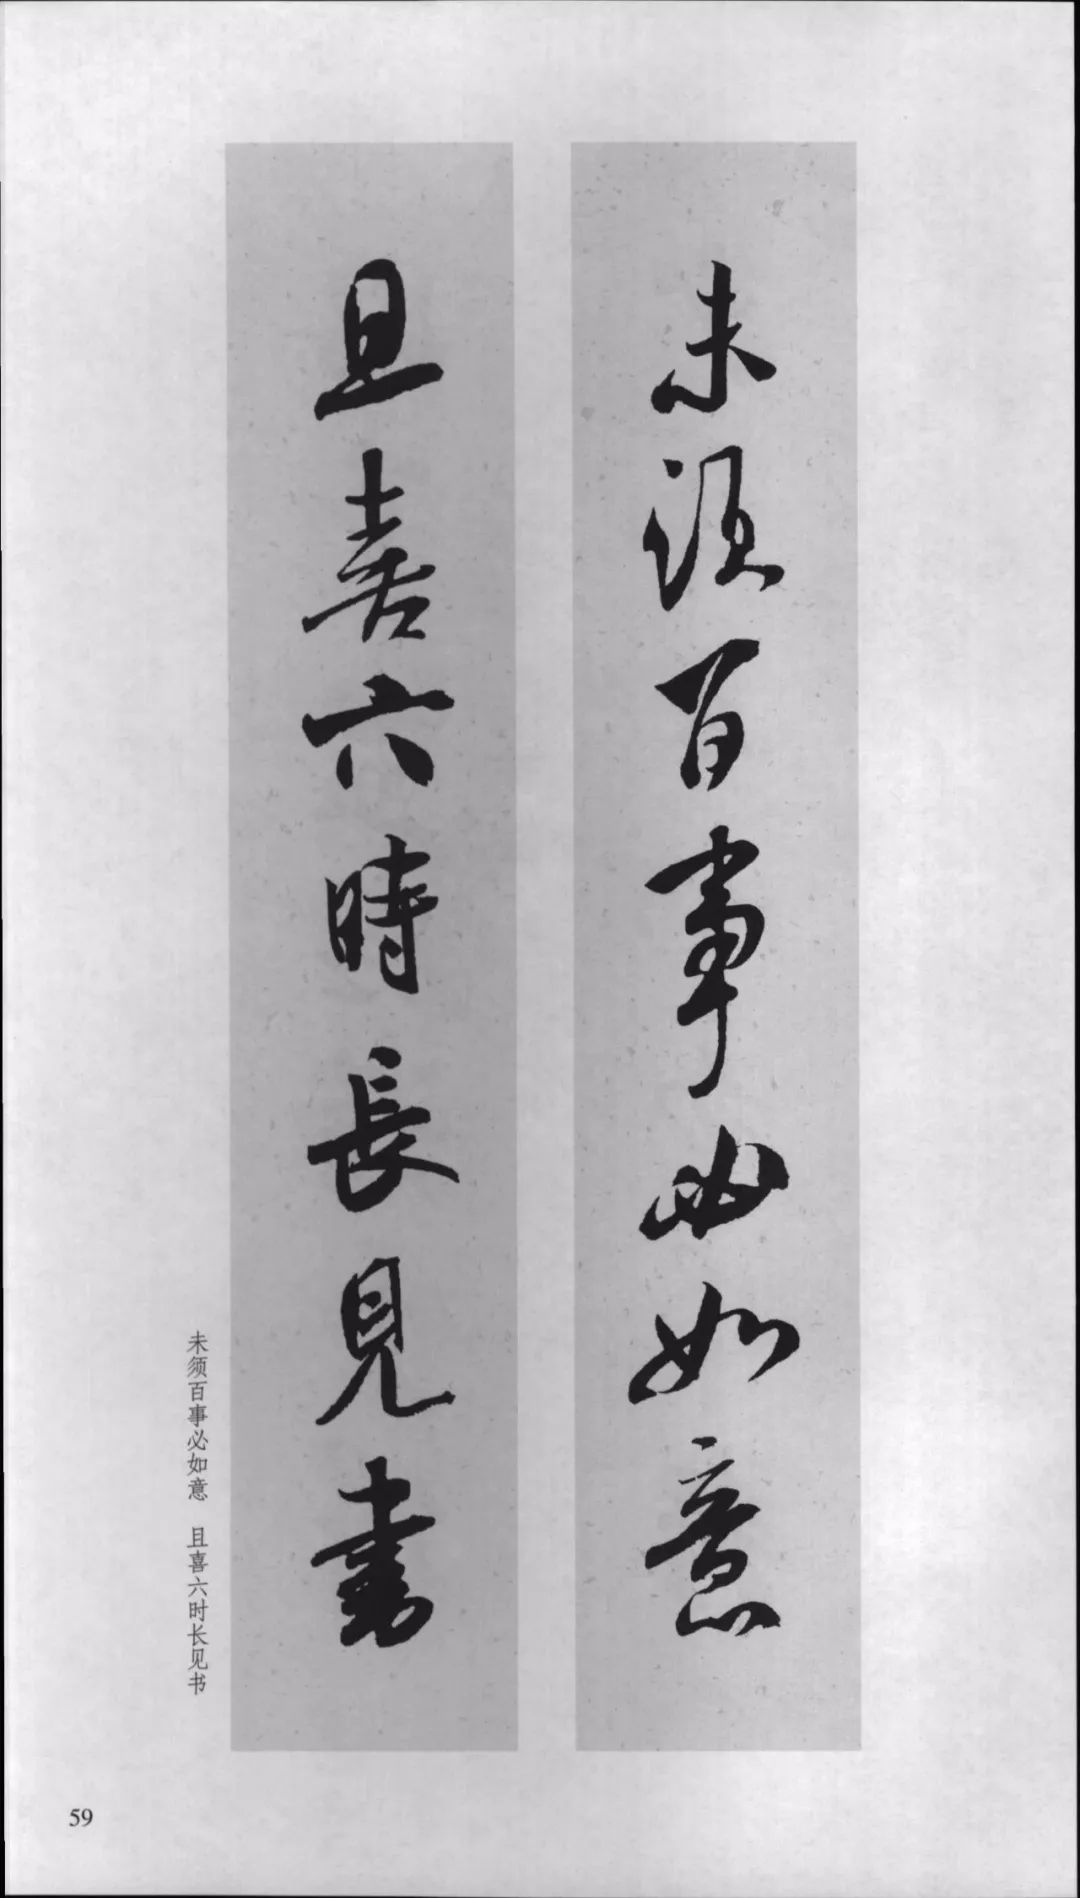 未須百事必如意
且喜六時長見書
未须百事必如意 且喜六时长见书
59